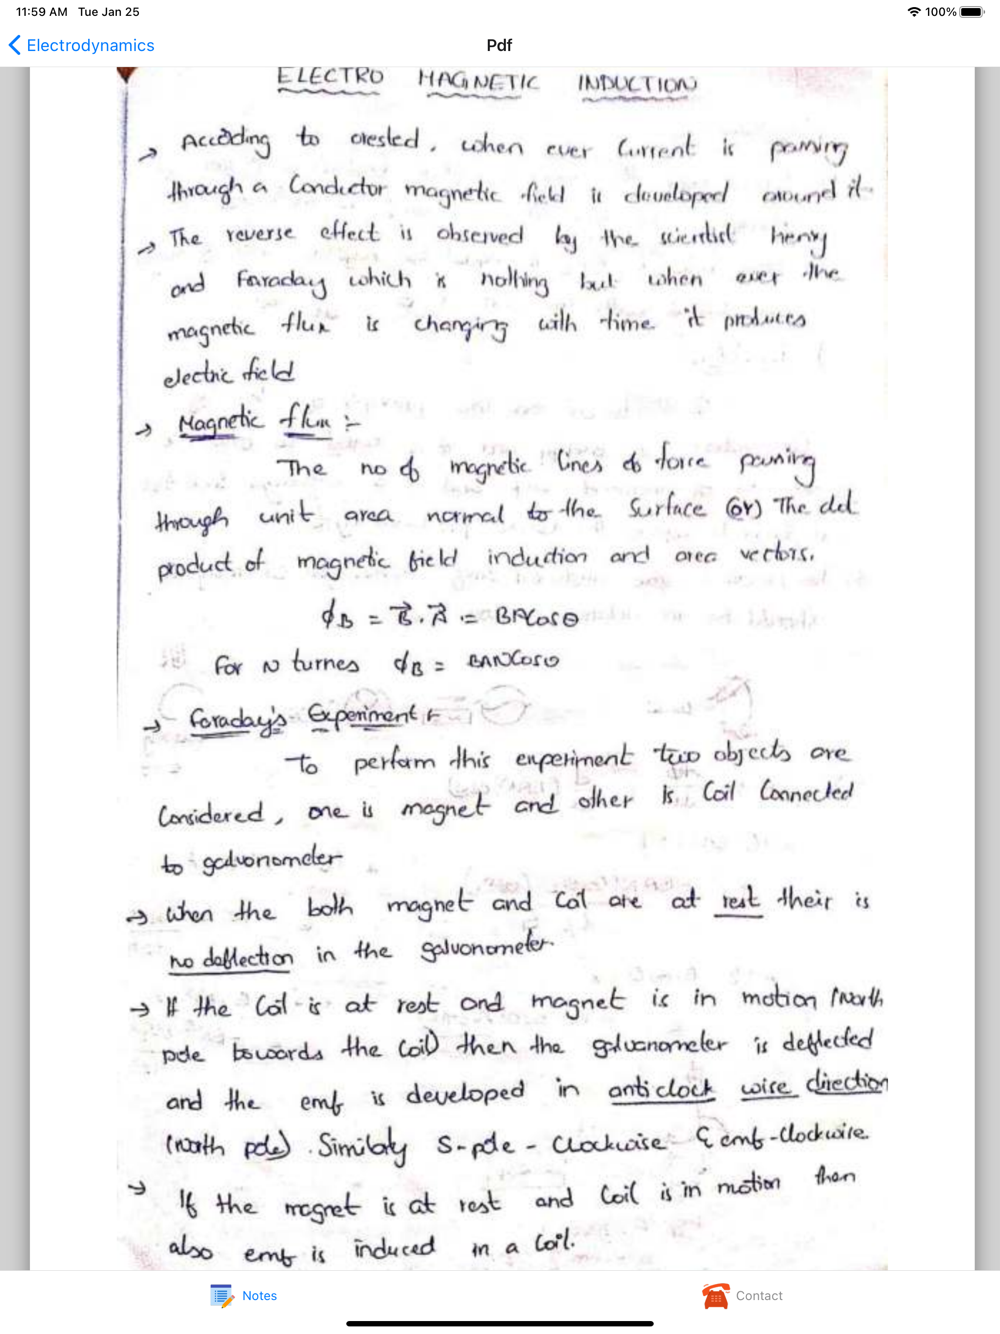 11:59 AM Tue Jan 25 100%
Electrodynamics
Pdf
ELECTRO MAGNETIC INDUCTION
→ According to orested, when ever Current is passing
through a Conductor magnetic field is developed around it
→ The reverse effect is observed by the scientist henry
and Faraday which is nothing but when ever the
magnetic flux is changing with time it produces
electric field
→ Magnetic flux :-
The no of magnetic lines of force passing
through unit area normal to the Surface (or) The dot
product of magnetic field induction and area vectors.
ϕB = B⃗.A⃗ = BACosθ
For N turnes ϕB = BANCosθ
→ Faraday's Experiment :-
To perfam this experiment two objects are
Considered, one is magnet and other is Coil Connected
to galvonometer
→ When the both magnet and Coil are at rest their is
no deflection in the galvonometer.
→ If the Coil is at rest and magnet is in motion (North
pole towards the Coil) then the galvanometer is deflected
and the emf is developed in anticlock wise direction
(north pole). Similarly S-pole - Clockwise & emf-Clockwise.
→ If the magnet is at rest and Coil is in motion then
also emf is induced in a Coil.
Notes
Contact